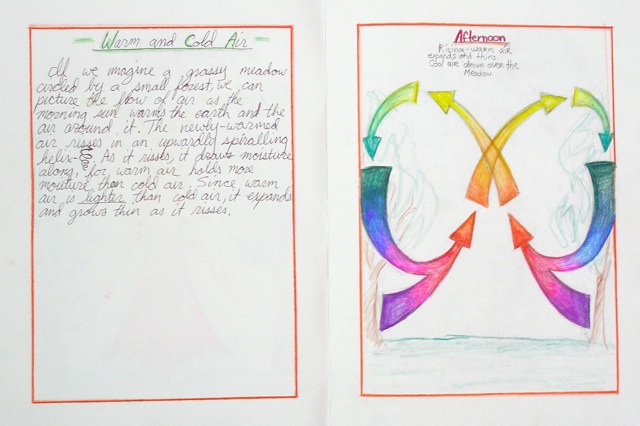 Warm and Cold Air
If we imagine a grassy meadow
circled by a small forest, we can
picture the flow of air as the
morning sun warms the earth and the
air around it. The newly-warmed
air rises in an upwardly spiralling
helix. As it risses, it draws moisture
along, for warm air holds more
moisture than cold air. Since warm
air is lighter than cold air, it expands
and grows thin as it risses.
Afternoon
Rising-warm air
expands and thins
Cool air down over the
Meadow